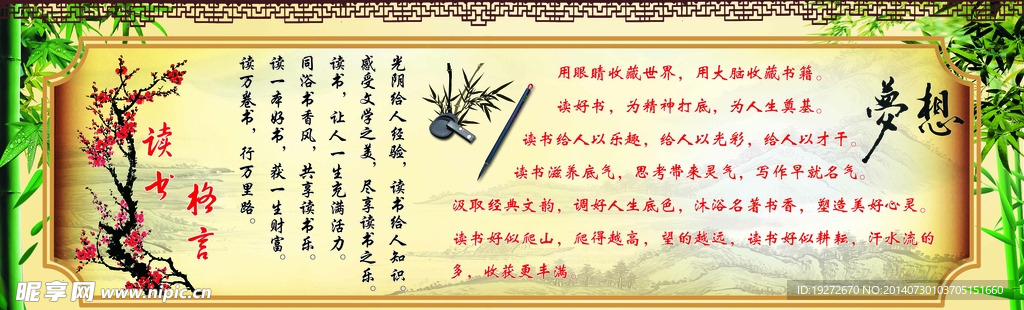 读书
格言
光阴给人经验，读书给人知识。
感受文学之美，尽享读书之乐。
读书，让人一生充满活力。
同浴书香风，共享读书乐。
读一本好书，获一生财富。
读万卷书，行万里路。
用眼睛收藏世界，用大脑收藏书籍。
读好书，为精神打底，为人生奠基。
读书给人以乐趣，给人以光彩，给人以才干。
读书滋养底气，思考带来灵气，写作早就名气。
汲取经典文韵，调好人生底色，沐浴名著书香，塑造美好心灵。
读书好似爬山，爬得越高，望的越远，读书好似耕耘，汗水流的
多，收获更丰满。
夢想
昵享网 www.nipic.cn
ID:19272670 NO:20140730103705151660